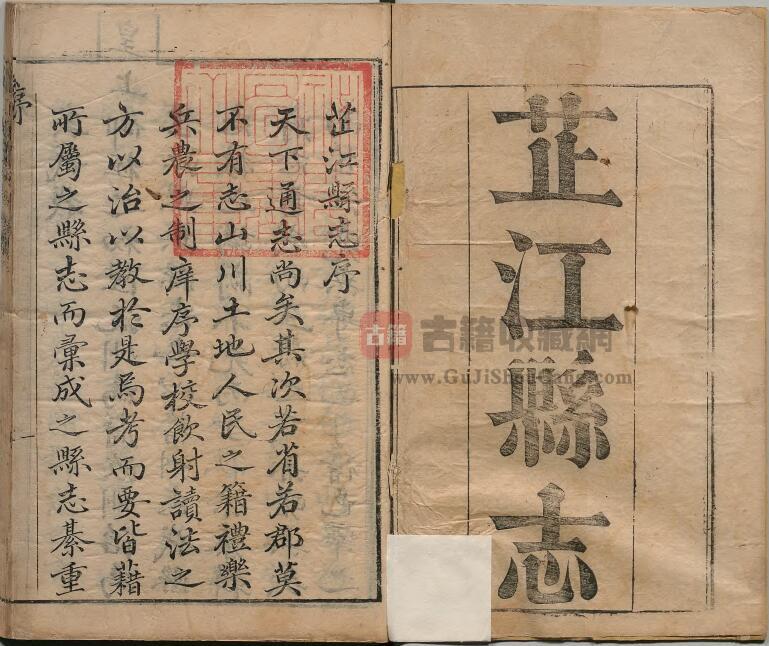 芷江縣志
芷江縣志序
天下通志尚矣其次若省若郡莫
不有志山川土地人民之籍禮樂
兵農之制庠序學校飲射讀法之
方以治以教於是焉考而要皆藉
所屬之縣志而彙成之縣志綦重
序
一
古籍
古籍收藏網
www.GuJiShouCang.com